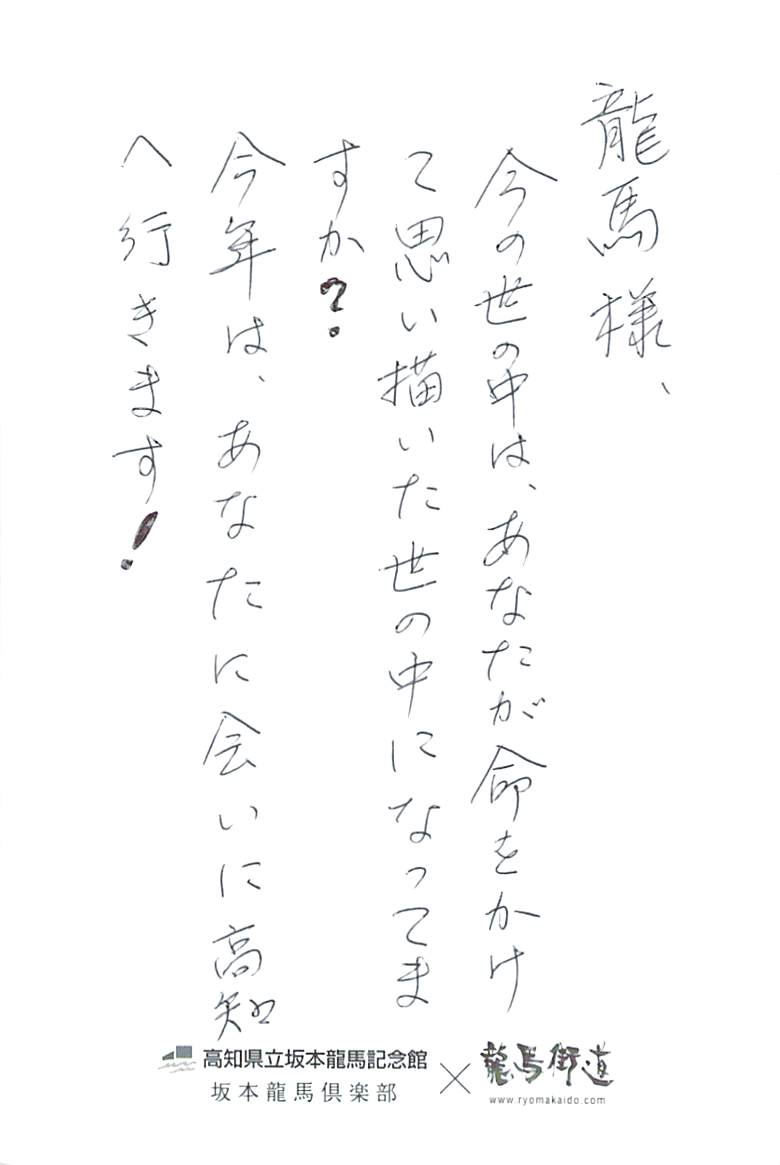 龍馬様、
今の世の中は、あなたが命をかけ
て思い描いた世の中になってま
すか？
今年は、あなたに会いに高知
へ行きます！
高知県立坂本龍馬記念館
坂本龍馬倶楽部
×
龍馬街道
www.ryomakaido.com